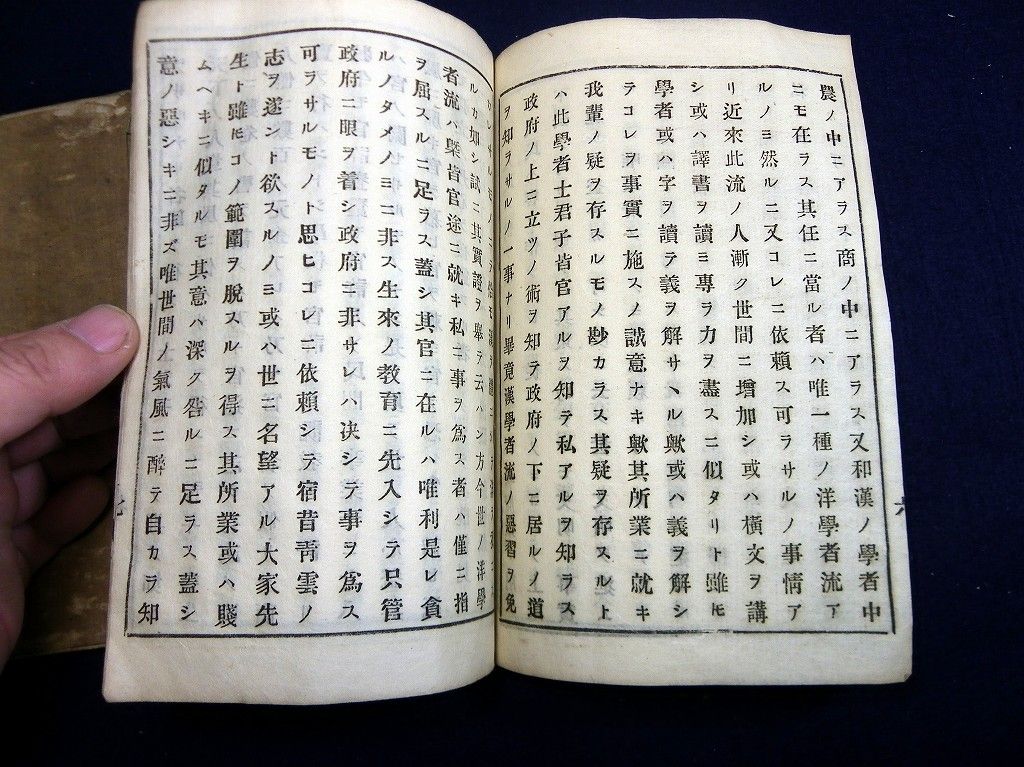 農ノ中ニアラス商ノ中ニアラス又和漢ノ學者中
ニモ在ラス其任ニ當ル者ハ唯一種ノ洋學者流ア
ルノミ然ルニ又コレニ依頼ス可ラサルノ事情ア
リ近來此流ノ人漸ク世間ニ增加シ或ハ橫文ヲ講
シ或ハ譯書ヲ讀ミ專ラ力ヲ盡スニ似タリト雖𪜈
學者或ハ字ヲ讀テ義ヲ解サヽル歟或ハ義ヲ解シ
テコレヲ事實ニ施スノ誠意ナキ歟其所業ニ就キ
我輩ノ疑ヲ存スルモノ尠カラス其疑ヲ存スルト
ハ此學者士君子皆官アルヲ知テ私アルヲ知ラス
政府ノ上ニ立ツノ術ヲ知テ政府ノ下ニ居ルノ道
ヲ知ラサルノ一事ナリ畢竟漢學者流ノ惡習ヲ免
ルカ如シ試ニ其實證ヲ擧テ云ハン方今世ノ洋學
者流ハ槩皆官途ニ就キ私ニ事ヲ爲ス者ハ僅ニ指
ヲ屈スルニ足ラス蓋シ其官ニ在ルハ唯利是レ貪
ルノタメノミニ非ス生來ノ教育ニ先入シテ只管
政府ニ眼ヲ着シ政府ニ非サレハ决シテ事ヲ爲ス
可ラサルモノト思ヒコレニ依頼シテ宿昔青雲ノ
志ヲ遂ント欲スルノミ或ハ世ニ名望アル大家先
生ト雖𪜈コノ範圍ヲ脫スルヲ得ス其所業或ハ賤
ムヘキニ似タルモ其意ハ深ク咎ルニ足ラス蓋シ
意ノ惡シキニ非ズ唯世間ノ氣風ニ醉テ自カラ知